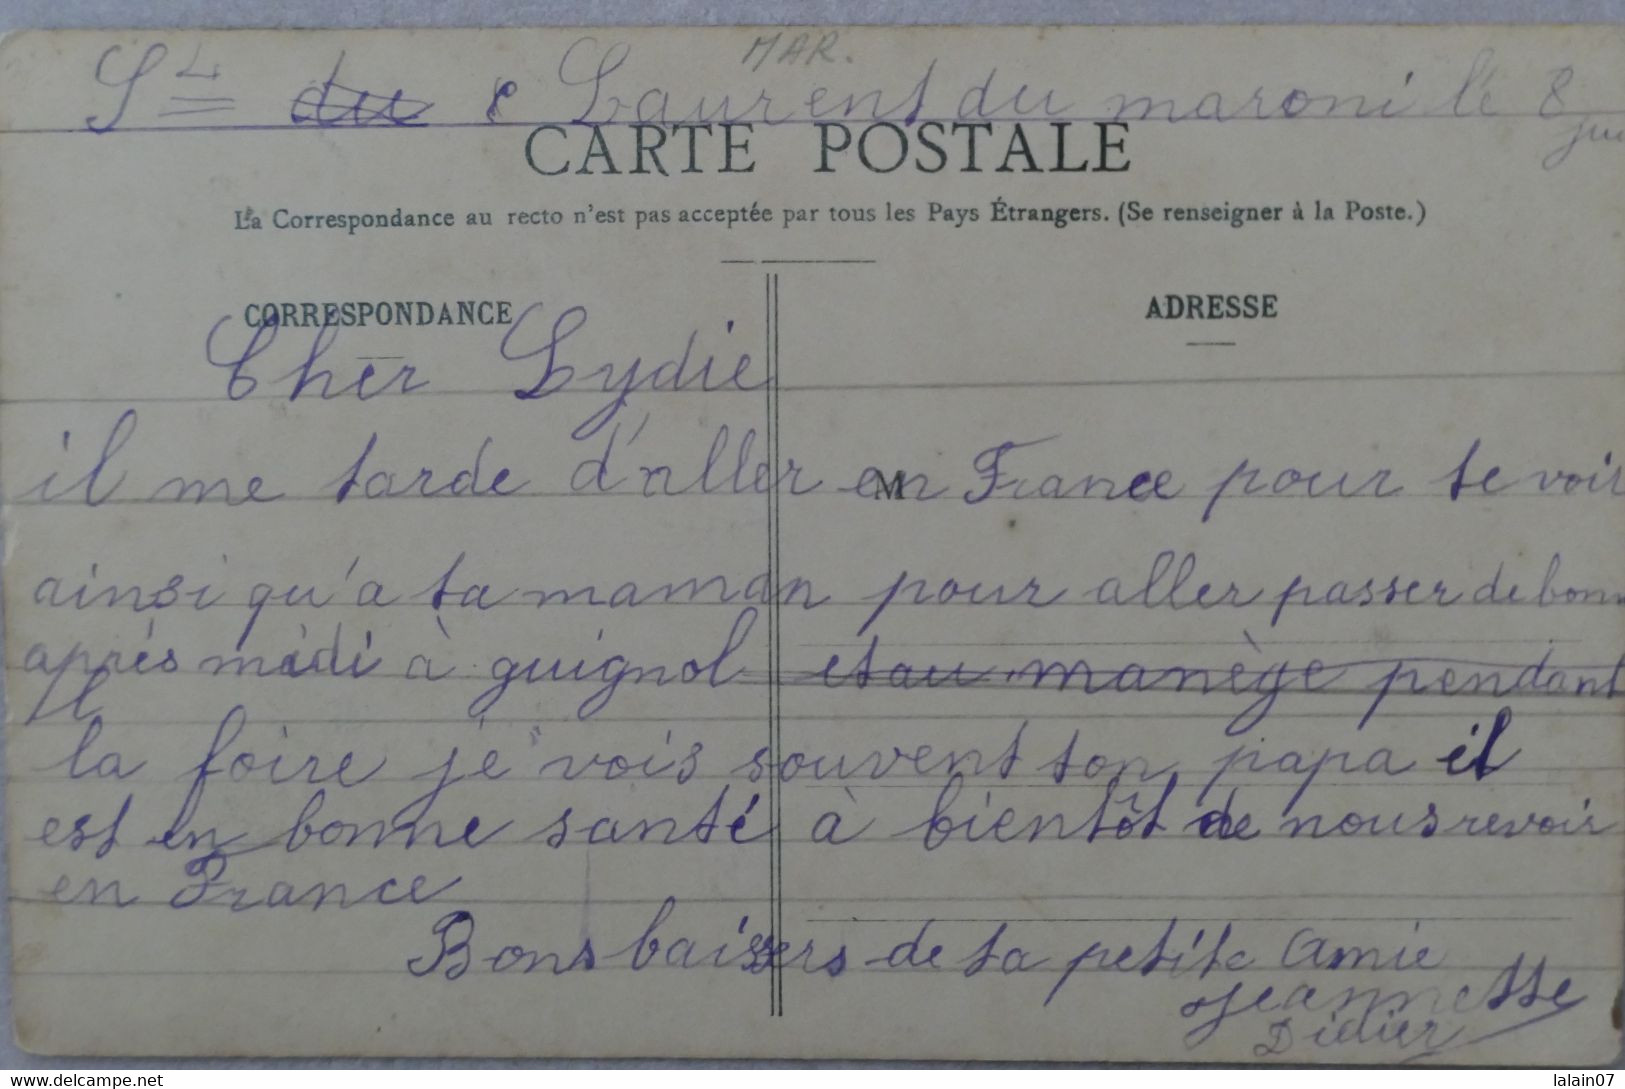 MAR.
St du Laurent du maroni le 8
CARTE POSTALE
La Correspondance au recto n'est pas acceptée par tous les Pays Étrangers. (Se renseigner à la Poste.)
CORRESPONDANCE
ADRESSE
Cher Lydie
M
il me tarde d'aller en France pour te voir
ainsi qu'a ta maman pour aller passer de bonn
après midi à guignol et au manège pendant
la foire je vois souvent ton papa il
est en bonne santé à bientôt de nous revoir
en France
Bons baissers de ta petite Amie
Jeannette
Didier
delcampe.net
lalain07